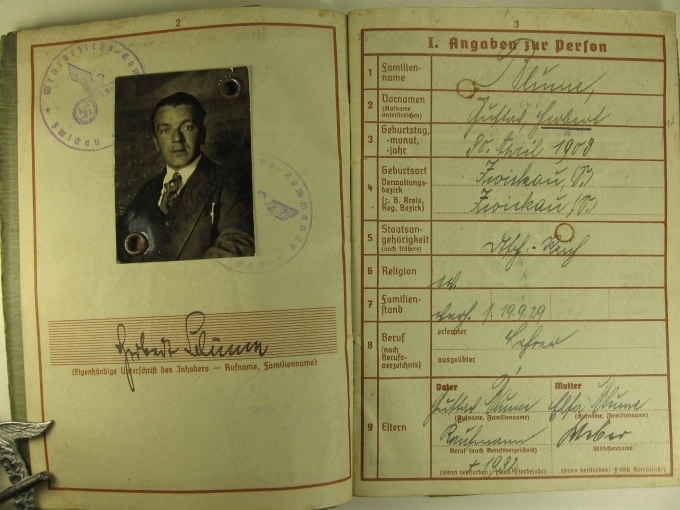 2
Wehrbezirks-Kommando
Zwickau
Herbert Blume
(Eigenhändige Unterschrift des Inhabers — Rufname, Familienname)
3
I. Angaben zur Person
1 Familienname Blume,
2 Vornamen (Rufname unterstreichen) Gustav Herbert
3 Geburtstag, -monat, -jahr 30. April 1903
4 Geburtsort Zwickau, Sa
Verwaltungsbezirk (z. B. Kreis, Reg. Bezirk) Zwickau, Sa
5 Staatsangehörigkeit (auch frühere) Dtsch. Reich
6 Religion ev.
7 Familienstand verh. 19.9.29
8 Beruf (nach Berufsverzeichnis) erlernter Lehrer
ausgeübter
9 Eltern
Vater Mutter
Gustav Blume Elsa Blume
(Rufname, Familienname) (Rufname, Familienname)
Kaufmann Weber
Beruf (nach Berufsverzeichnis) Mädchenname
† 1932
(wenn verstorben: † und Sterbejahr) (wenn verstorben: † und Sterbejahr)